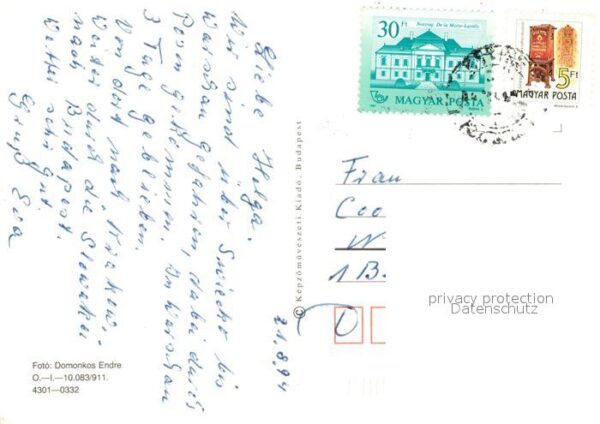 Liebe Helga.
Wir sind über Swiecko bis
Warschau gefahren, dabei durch
Posen gekommen. In Warschau
3 Tage geblieben.
Von dort nach Krakow,
weiter durch die Slowakei
nach Budapest.
Wetter sehr gut
Gruß Eva
21.8.94
Foto: Domonkos Endre
O.—I.—10.083/911.
4301—0332
© Képzőművészeti Kiadó, Budapest
30 Ft
MAGYAR POSTA
5 Ft
MAGYAR POSTA
Frau
Coo
W
1 B.
D
privacy protection
Datenschutz